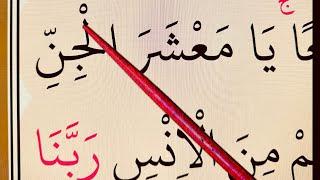 عًا ۚ يَا مَعْشَرَ الْجِنِّ
مْ مِنَ الْاِنْسِ رَبَّنَا